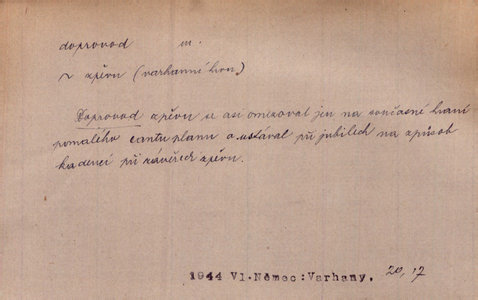 doprovod m.
~ zpěvu (varhanní hrou)
Doprovod zpěvu se asi omezoval jen na současné hraní
pomalého cantu planu a ustával při jubilech na způsob
kadencí při závěrech zpěvu.
1944 Vl.Němec:Varhany. 20,17